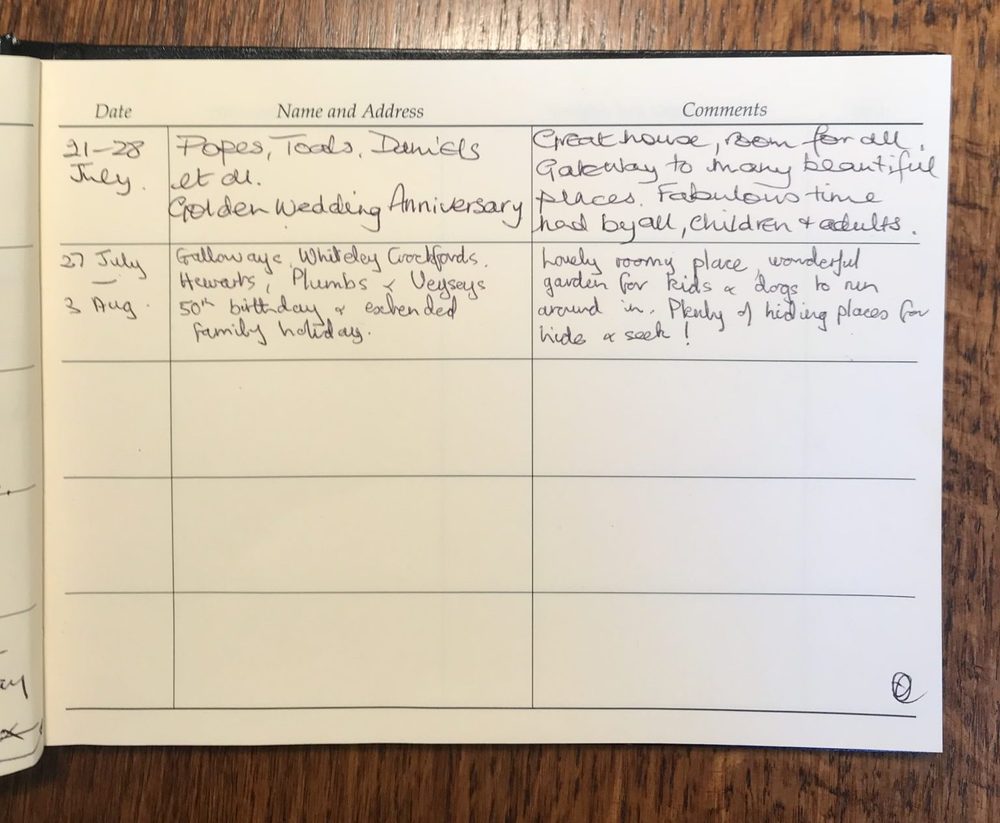 Date
Name and Address
Comments
21-28
July.
Popes, Toals, Daniels
et al.
Golden Wedding Anniversary
Great house, room for all.
Gateway to many beautiful
places. Fabulous time
had by all, children + adults.
27 July
—
3 Aug.
Galloways, Whiteley Crockfords.
Hewarts, Plumbs & Veyseys
50th birthday & extended
family holiday.
Lovely roomy place, wonderful
garden for kids & dogs to run
around in. Plenty of hiding places for
hide & seek!